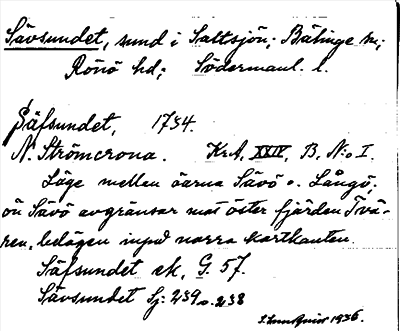 Sävsundet, sund i Saltsjön; Bälinge sn;
Rönö hd; Södermanl. l.
Säfsundet, 1734.
N. Strömcrona. KrA, XXIV, B, N:o I.
Läge mellan öarna Sävö o. Långö;
ön Sävö avgränsar mot öster fjärden Tvä-
ren, belägen invid norra kartkanten.
Säfsundet ek. G. 57.
Sävsundet Sj: 239 o. 238
1936.